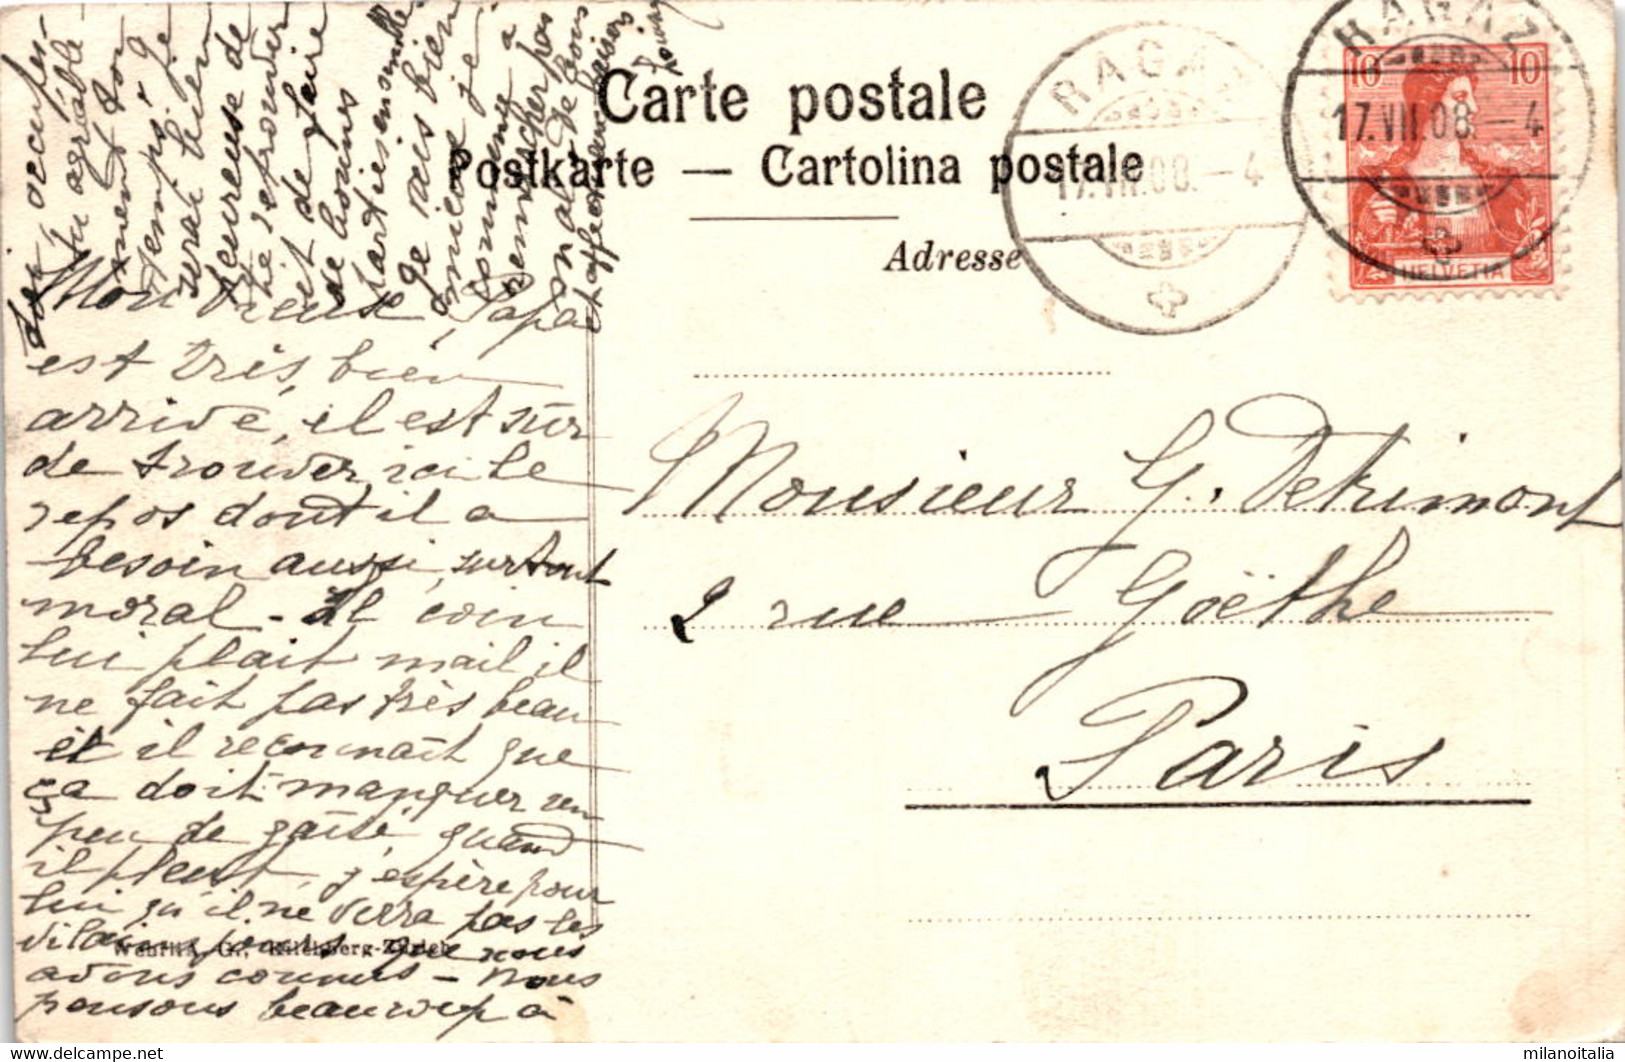 Carte postale
Postkarte — Cartolina postale
Adresse
RAGAZ
17.VII.08.-4
RAGAZ
17.VII.08.-4
10 10
HELVETIA
Monsieur G. Detrimont
2 rue Goëthe
Paris
Mon vieux, Papa
est très bien
arrivé, il est sûr
de trouver ici le
repos dont il a
besoin aussi, surtout
moral - Le coin
lui plait mail il
ne fait pas très beau
et il reconnaît que
ça doit manquer un
peu de gaîté, quand
il pleut, j'espère pour
lui qu'il ne verra pas les
vilains jours que nous
avons connus - Nous
pensons beaucoup à
toi, occupes-
tu agréable-
ment ton
temps? Je
serai bien
heureuse de
te retrouver
et de faire
de bonnes
parties ensemble
Je vais bien
mieux je
commence à
marcher pas
mal de bons
affectueux baisers
Wehrli A.-G., Kilchberg-Zürich
milanoitalia